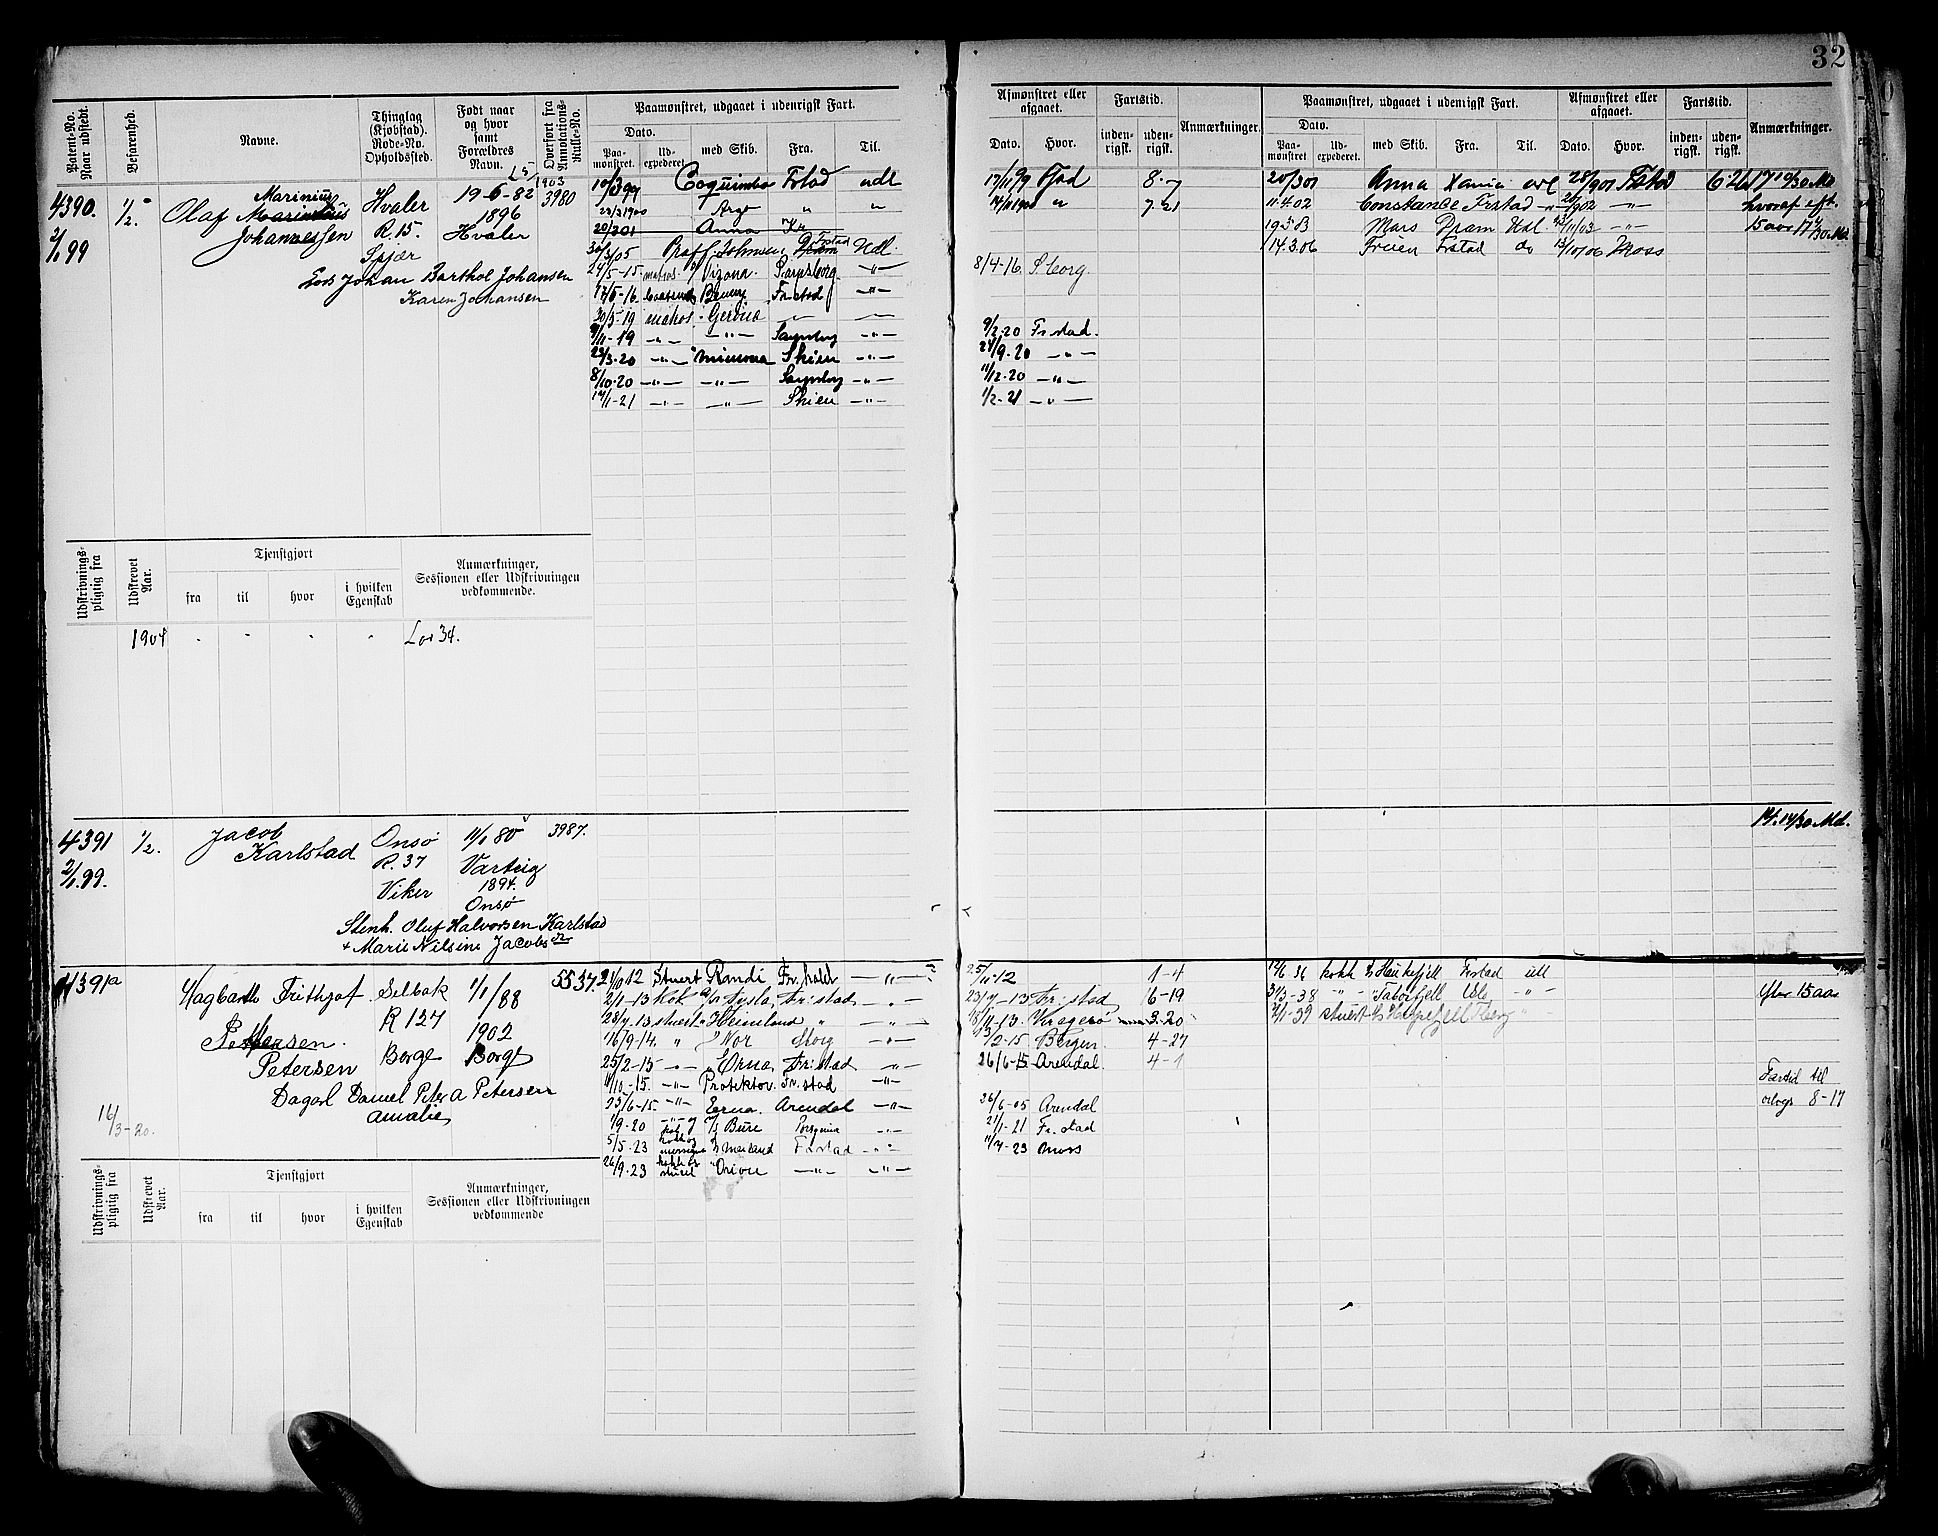 32
Patent-No. Naar udstedt.
Befarenhed.
Navne.
Thinglag (Kjøbstad). Rode-No. Opholdssted.
Født naar og hvor samt Forældres Navn.
Overført fra Annotations-Rulle-No.
Paamønstret, udgaaet i udenrigsk Fart.
Dato.
Paamønstret. Udexpederet. med Skib. Fra. Til.
Afmønstret eller afgaaet.
Dato. Hvor.
Fartstid.
indenrigsk. udenrigsk.
Anmærkninger.
Paamønstret, udgaaet i udenrigsk Fart.
Dato.
Paamønstret Udexpederet. med Skib. Fra. Til.
Afmønstret eller afgaaet.
Dato. Hvor.
Fartstid.
indenrigsk. udenrigsk.
Anmærkninger.
4390.
2/1 99
1/2
Olaf Marinius
Johannessen
Hvaler
R. 15.
Spjær
19-6-82
1896
Hvaler
1903
3980
Lods Johan Barthol Johansen
Karen Johansen
10/3 99 Coquimbo Frstad udl
23/3 1900 Argo " "
20/3 01 Anna Kr
30/3 05 Frstad Udl.
24/5-15 matros Sarpsborg -"-
17/5-16 Fr.stad -"-
30/5-19 matros Gerona
/11-19 -"- -"- Sarpsborg -"-
23/3-20 -"- Minerva Skien -"-
8/10-20 -"- -"- Sarpsborg -"-
17/1-21 -"- -"- Skien -"-
17/11 99 Fstad 8-7
14/11 1900 " 7-21
8/4-16. S.borg.
9/2-20 Fr.stad.
24/9-20 -"-
11/12-20 -"-
1/2-21 -"-
20/3 01 Anna Xania 28/9 01 Fstad 6 26
11-4-02 Constance Frstad -"- 9 02 -"-
19 3 03 Mars Dram Udl. 23/11/03 -"-
14.3.06 Freien Frstad do 13/10/06 Moss
17 19/30 Md
hvoraf eft.
15 aar 17 /30 Md
Udskrivningspligtig fra
Udskrevet Aar.
Tjenstgjort
fra til hvor i hvilken Egenskab
Anmærkninger, Sessionen eller Udskrivningen vedkommende.
1904 Lov 34.
4391
2/1 99.
1/2.
Jacob
Karlstad
Onsø
R. 37
Viker
11/1 80
Varteig
1894.
Onsø
3987.
Stenh. Oluf Halvorsen Karlstad
+ Marie Nilsine Jacobsdr
14. 14/30 Md.
4391a
Hagbarth Frithjof
Petersen
Selbak
R 127
Borge
1/1/88
1902
Borge
5537.
Dagarb. Daniel Peter A Petersen
Amalie
14/3-20.
21/10 12 Stuert Randi Fr.hald -"-
2/1-13 Kok Fr.stad -"-
23/7-13 stuert " Heimland " -"-
16/9-14. " Nor Sborg -"-
25/2-15 -"- Erna Fr.stad -"-
/10-15. -"- Protektor. Fr.stad -"-
23/6-15 -"- Erna. Arendal -"-
1/9-20 Bure -"-
5/5-23 kok og Frstad -"-
26/9-23 kokk og stuert Orion -"- -"-
25/11-12 1-4
23/7-13 Fr.stad 6-19
18/11-13. Kragerø 3-20
/2-15 Bergen. 4-27
26/6-15 Arendal 4-1
26/6-05 Arendal
21/1-21 Fr.stad
11/7-23 Moss
17/6-36 kokk Haukefjell Frstad utl
31/3-38 -"- Taborfjell Oslo -"-
/1-39 stuert
efter 15 aar
Fartid til
orlogs 8-17
Udskrivningspligtig fra
Udskrevet Aar.
Tjenstgjort
fra til hvor i hvilken Egenskab
Anmærkninger, Sessionen eller Udskrivningen vedkommende